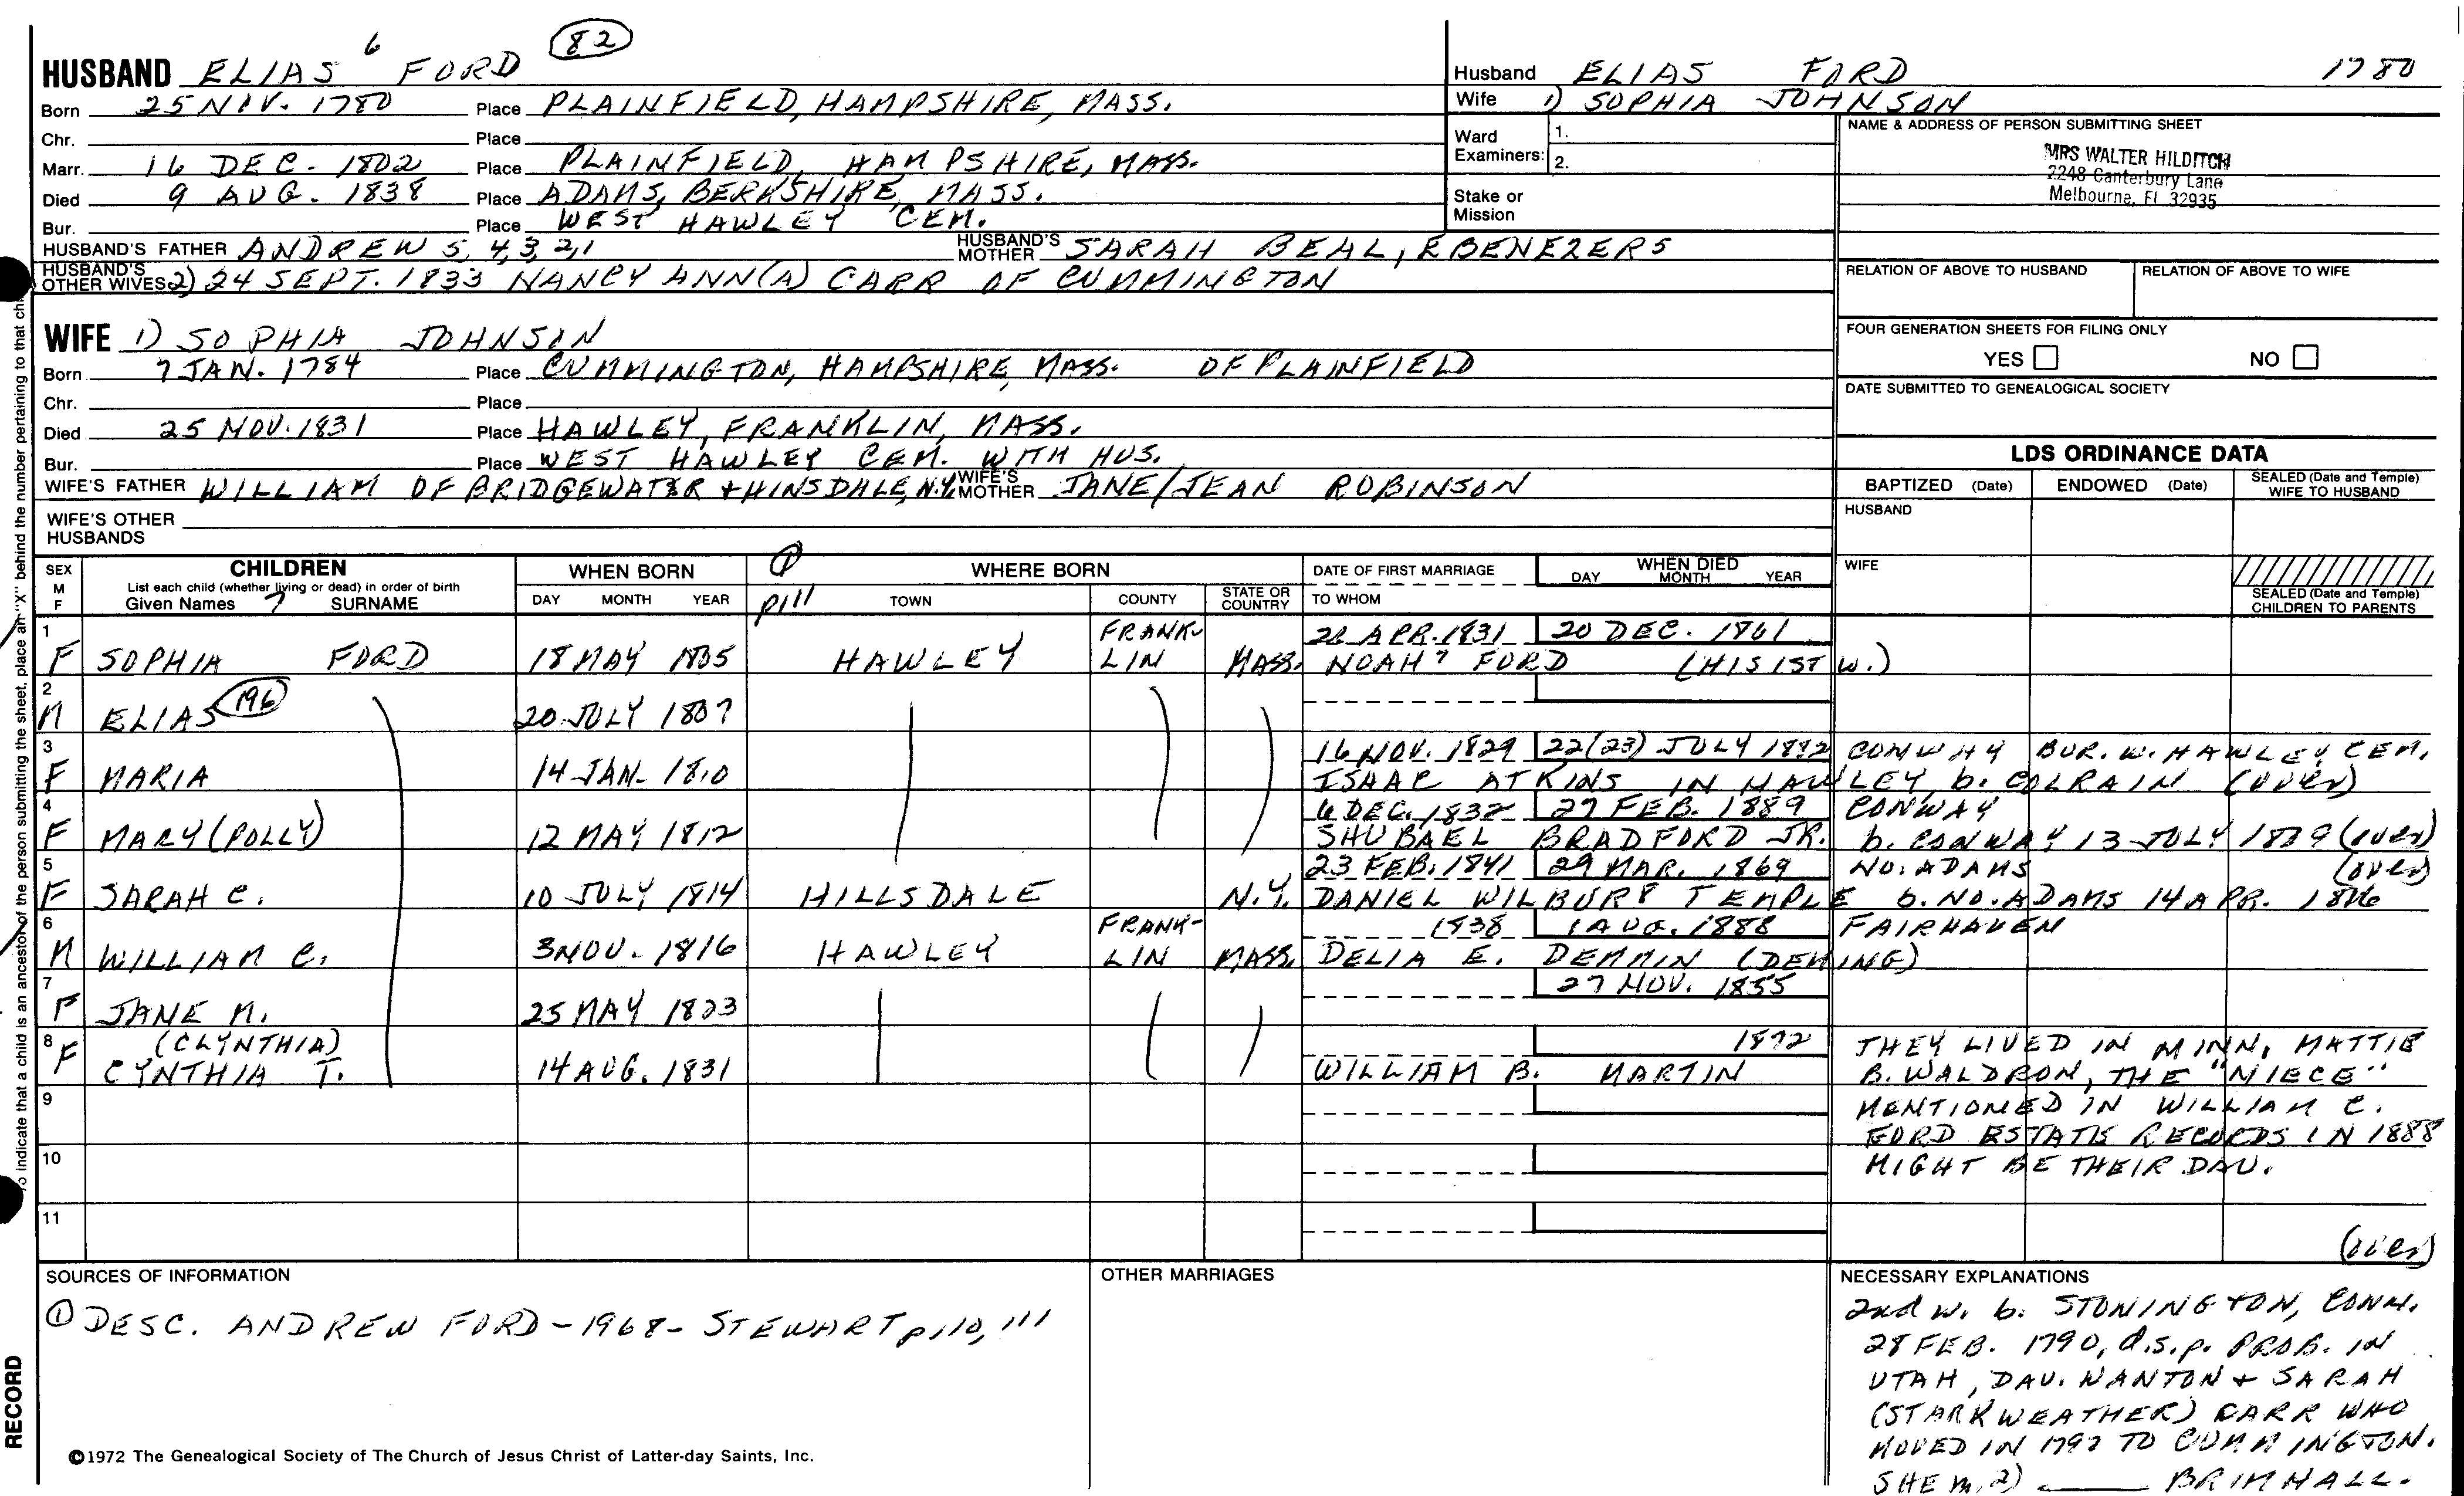 HUSBAND ELIAS 6 FORD (82)
Born 25 NOV. 1780 Place PLAINFIELD, HAMPSHIRE, MASS.
Chr. Place
Marr. 16 DEC. 1802 Place PLAINFIELD, HAMPSHIRE, MASS.
Died 9 AUG. 1838 Place ADAMS, BERKSHIRE, MASS.
Bur. Place WEST HAWLEY CEM.
HUSBAND'S FATHER ANDREW 5, 4, 3, 2, 1 HUSBAND'S MOTHER SARAH BEAL, EBENEZER 5
HUSBAND'S OTHER WIVES 2) 24 SEPT. 1833 NANCY ANN(A) CARR OF CUMMINGTON
Husband ELIAS FORD 1780
Wife 1) SOPHIA JOHNSON
Ward Examiners: 1.
2.
Stake or Mission
NAME & ADDRESS OF PERSON SUBMITTING SHEET
MRS WALTER HILDITCH
2248 Canterbury Lane
Melbourne, Fl 32935
RELATION OF ABOVE TO HUSBAND RELATION OF ABOVE TO WIFE
FOUR GENERATION SHEETS FOR FILING ONLY
YES NO
DATE SUBMITTED TO GENEALOGICAL SOCIETY
WIFE 1) SOPHIA JOHNSON
Born 7 JAN. 1784 Place CUMMINGTON, HAMPSHIRE, MASS. OF PLAINFIELD
Chr. Place
Died 25 NOV. 1831 Place HAWLEY, FRANKLIN, MASS.
Bur. Place WEST HAWLEY CEM. WITH HUS.
WIFE'S FATHER WILLIAM OF BRIDGEWATER + HINSDALE, N.Y. WIFE'S MOTHER JANE/JEAN ROBINSON
WIFE'S OTHER HUSBANDS
LDS ORDINANCE DATA
BAPTIZED (Date) ENDOWED (Date) SEALED (Date and Temple) WIFE TO HUSBAND
HUSBAND
WIFE
SEALED (Date and Temple) CHILDREN TO PARENTS
SEX M F CHILDREN WHEN BORN 1 WHERE BORN DATE OF FIRST MARRIAGE WHEN DIED
List each child (whether living or dead) in order of birth
Given Names 7 SURNAME DAY MONTH YEAR p111 TOWN COUNTY STATE OR COUNTRY TO WHOM DAY MONTH YEAR
1 FRANK- APR. 1831 20 DEC. 1861
F SOPHIA FORD 18 MAY 1805 HAWLEY LIN MASS. NOAH 7 FORD (HIS 1ST W.)
2
M ELIAS (196) 20 JULY 1807
3 16 NOV. 1829 22(23) JULY 1892 CONWAY BUR. W. HAWLEY CEM.
F MARIA 14 JAN. 1810 ISAAC ATKINS IN HAWLEY, b. COLRAIN (over)
4 6 DEC. 1832 27 FEB. 1889 CONWAY
F MARY (POLLY) 12 MAY 1812 SHUBAEL BRADFORD JR. b. CONWAY 13 JULY (over)
5 23 FEB. 1841 29 MAR. 1869 NO. ADAMS (over)
F SARAH C. 10 JULY 1814 HILLSDALE N.Y. DANIEL WILBUR TEMPLE b. NO. ADAMS 14 APR. 1816
6 FRANK- 1838 1 AUG. 1888 FAIRHAVEN
M WILLIAM C. 3 NOV. 1816 HAWLEY LIN MASS. DELIA E. DEMMIN (DEMING)
7 27 NOV. 1855
F JANE M. 25 MAY 1823
8 (CLYNTHIA) 1872 THEY LIVED IN MINN, MATTIE
F CYNTHIA T. 14 AUG. 1831 WILLIAM B. MARTIN B. WALDRON, THE "NIECE"
9 MENTIONED IN WILLIAM C.
FORD ESTATE RECORDS IN 1888
10 MIGHT BE THEIR DAU.
11
(over)
SOURCES OF INFORMATION
① DESC. ANDREW FORD - 1968 - STEWART p110, 111
OTHER MARRIAGES
NECESSARY EXPLANATIONS
2nd w. b. STONINGTON, CONN.
28 FEB. 1790, d.s.p. PROB. IN
UTAH, DAU. WANTON + SARAH
(STARKWEATHER) CARR WHO
MOVED IN 1797 TO CUMMINGTON.
SHE m. 2) ____ BRIMHALL.
©1972 The Genealogical Society of The Church of Jesus Christ of Latter-day Saints, Inc.
RECORD
To indicate that a child is an ancestor of the person submitting the sheet, place an "X" behind the number pertaining to that